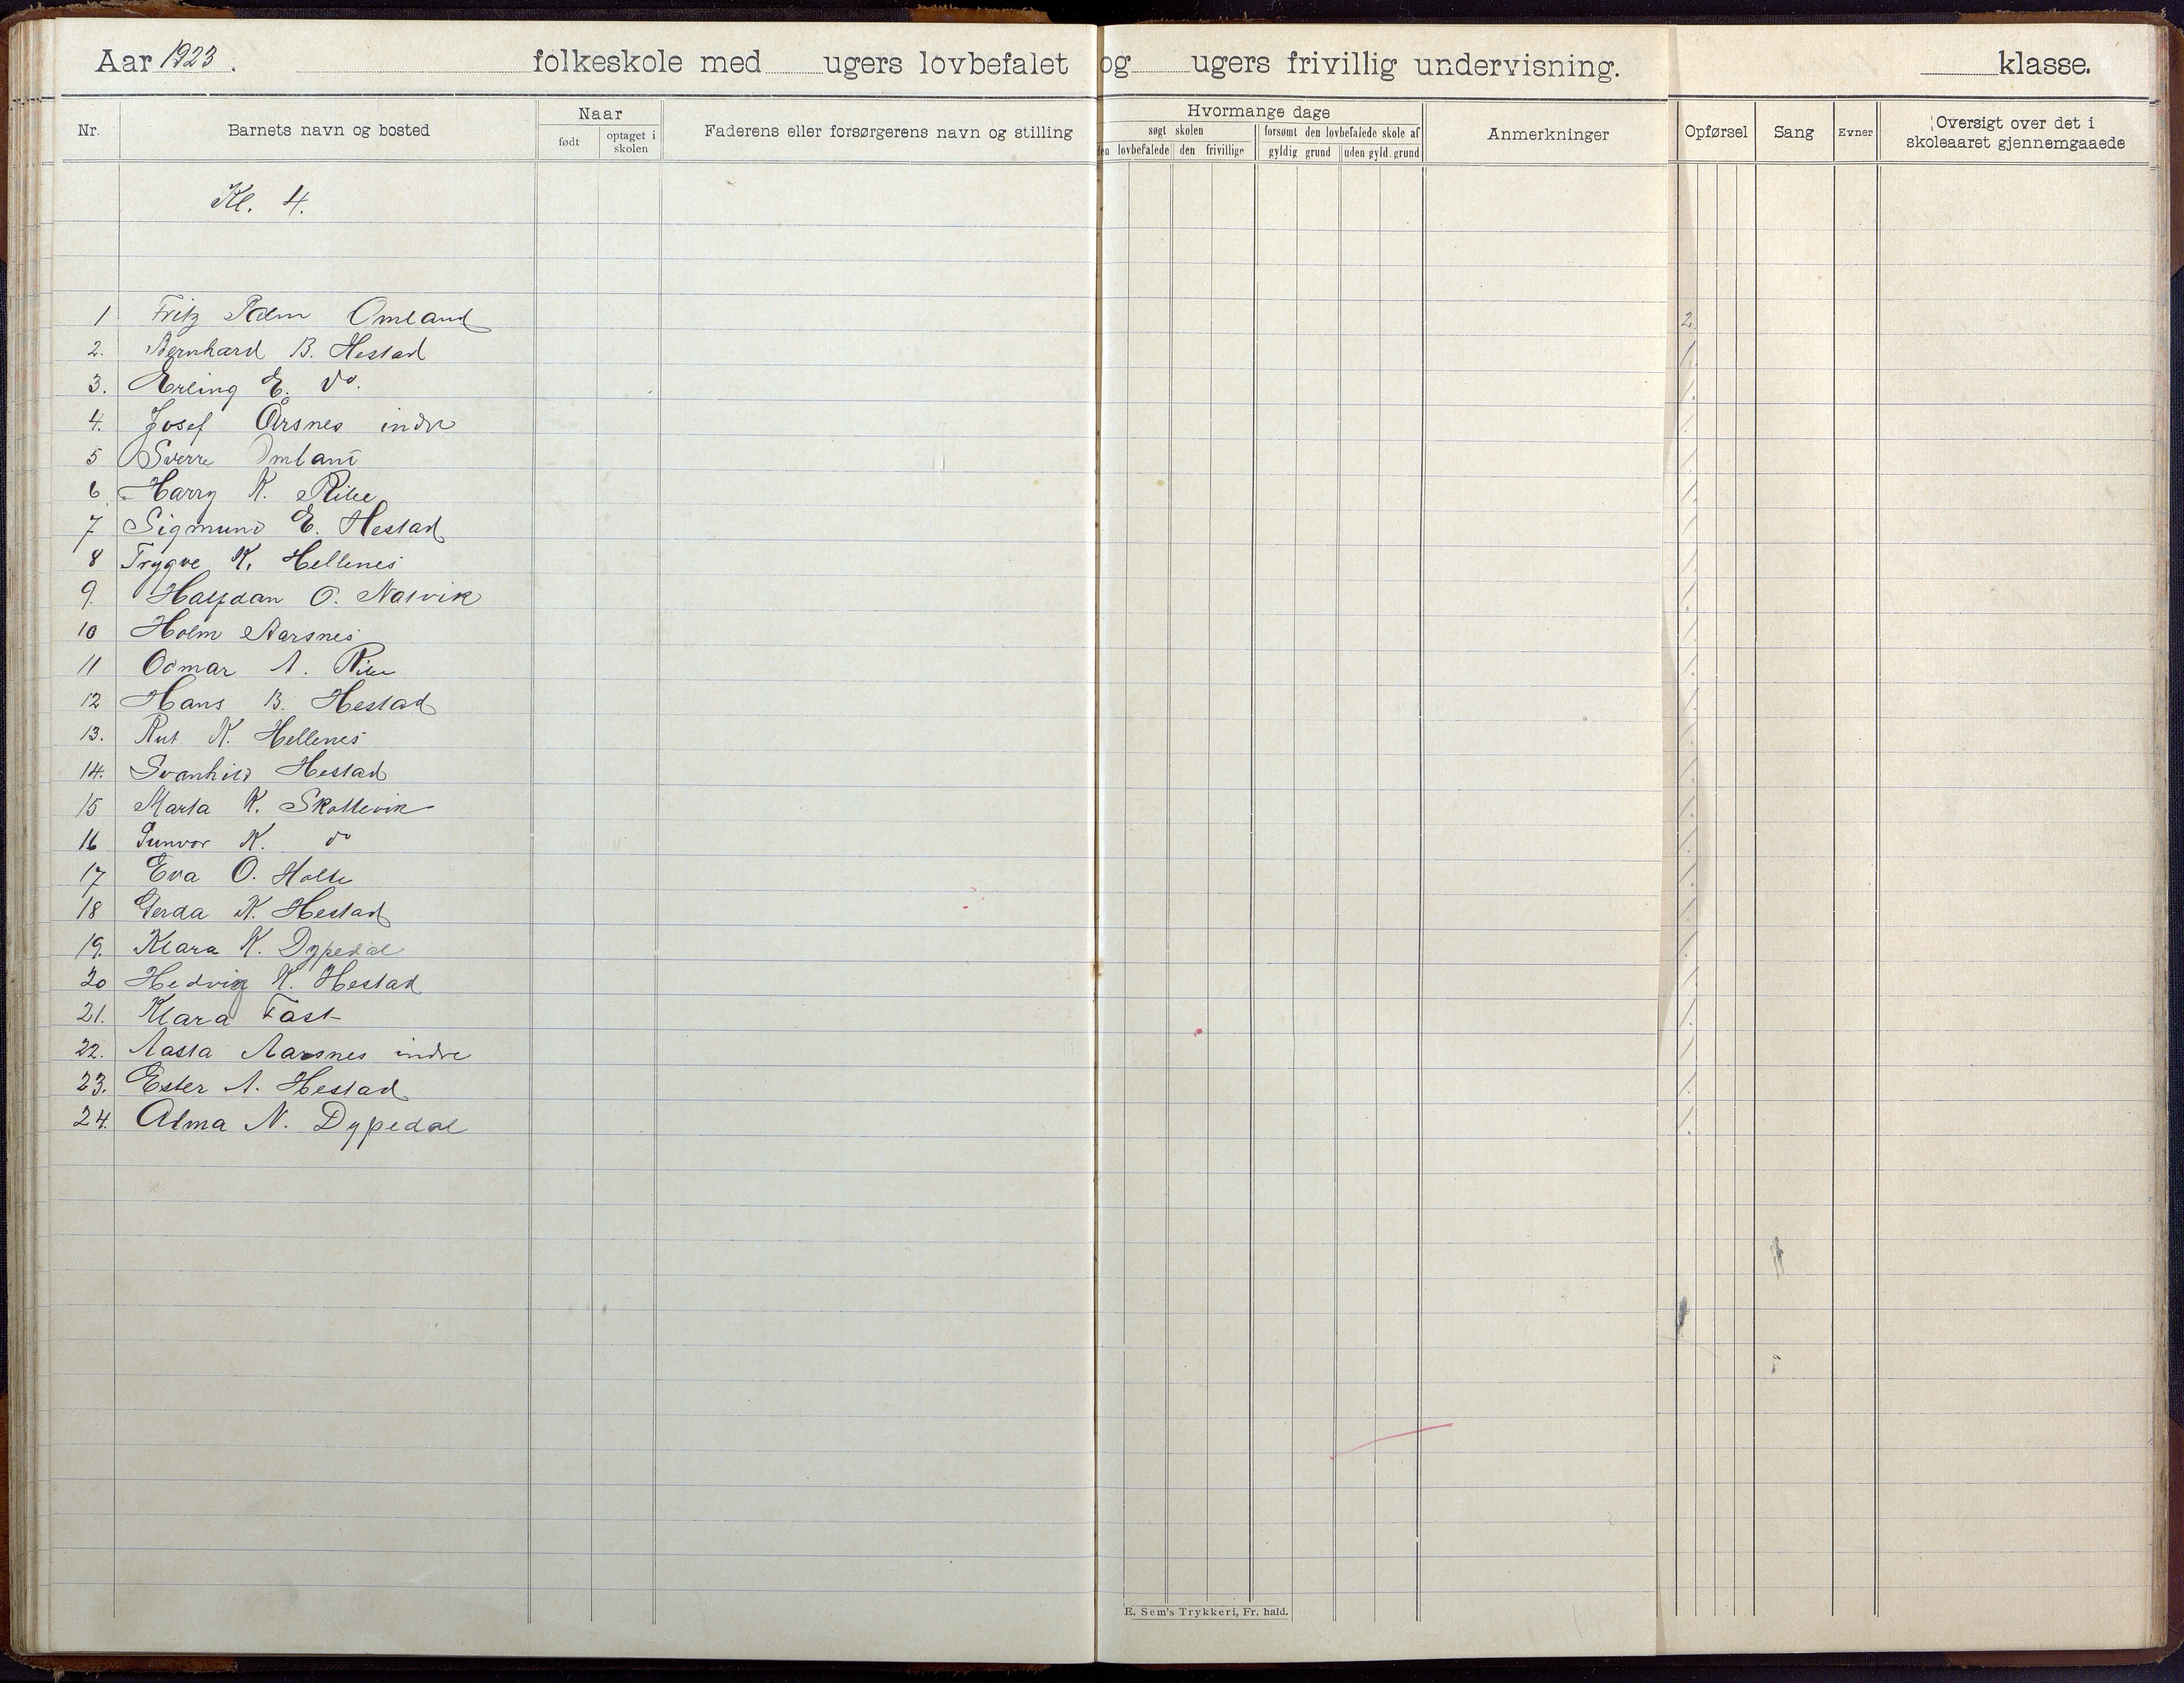 Aar 1923. folkeskole med ugers lovbefalet og ugers frivillig undervisning. klasse.
Nr. Barnets navn og bosted Naar født optaget i skolen Faderens eller forsørgerens navn og stilling Hvormange dage søgt skolen den lovbefalede den frivillige forsømt den lovbefalede skole af gyldig grund uden gyld. grund Anmerkninger Opførsel Sang Evner Oversigt over det i skoleaaret gjennemgaaede
Kl. 4.
1 Fritz Omland 2.
2. Bernhard B. Hestad /
3. Erling E. do. /.
4. Josef Årsnes indre /
5 Sverre Omland /
6 Harry K. Ribe /
7 Sigmund E. Hestad /
8 Trygve K. Hellenes /
9. Halfdan O. Natvik /.
10 Holm Aarsnes /
11 Odmar A. Ribe /.
12 Hans B. Hestad /
13. Rut K. Hellenes /
14. Svanhild Hestad /
15 Marta K. Skottevik /
16 Gunvor K. do /
17 Eva O. Holte /
18 Gerda K. Hestad /
19. Klara K. Dypedal /
20 Hedvig K. Hestad /
21. Klara Fast /.
22. Aasta Aarsnes indre /
23. Ester A. Hestad /
24. Alma N. Dypedal /.
E. Sem's Trykkeri, Fr. hald.